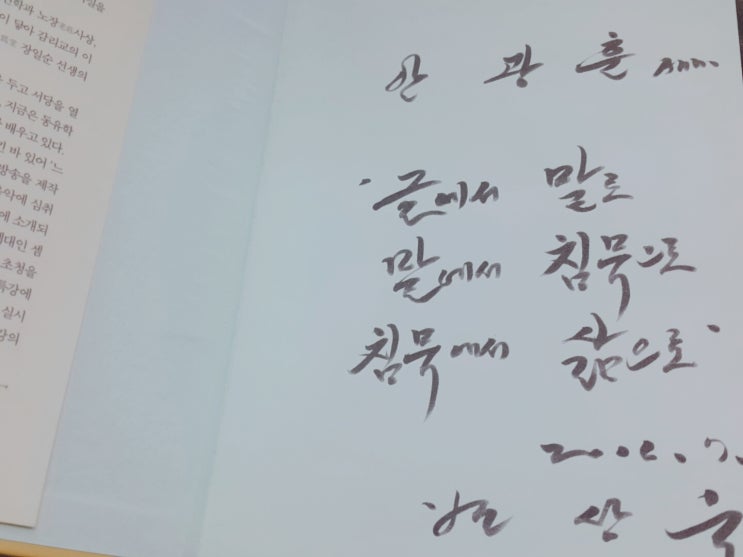 전학과 노장老莊사상,
이 닿아 감리교의 이
장일순 선생의
두고 서당을 열
지금은 동유학
배우고 있다.
바 있어 '느
방송을 제작
악에 심취
에 소개되
대인 셈
초청을
특강에
실시
강의
안 광 훈
'글에서 말로
말에서 침묵으로
침묵에서 삶으로'
7.